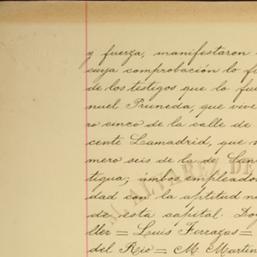 y fuerza, manifestaron
cuya comprobación lo f
de los testigos que lo fu
nuel Pruneda, que vive
ro cinco de la calle de
cente Lamadrid, que v
mero seis de la de San
tigua; ambos empleado
dad con la aptitud n
de esta capital. Do
ller = Luis Ferrazas =
del Rio = M. Martin